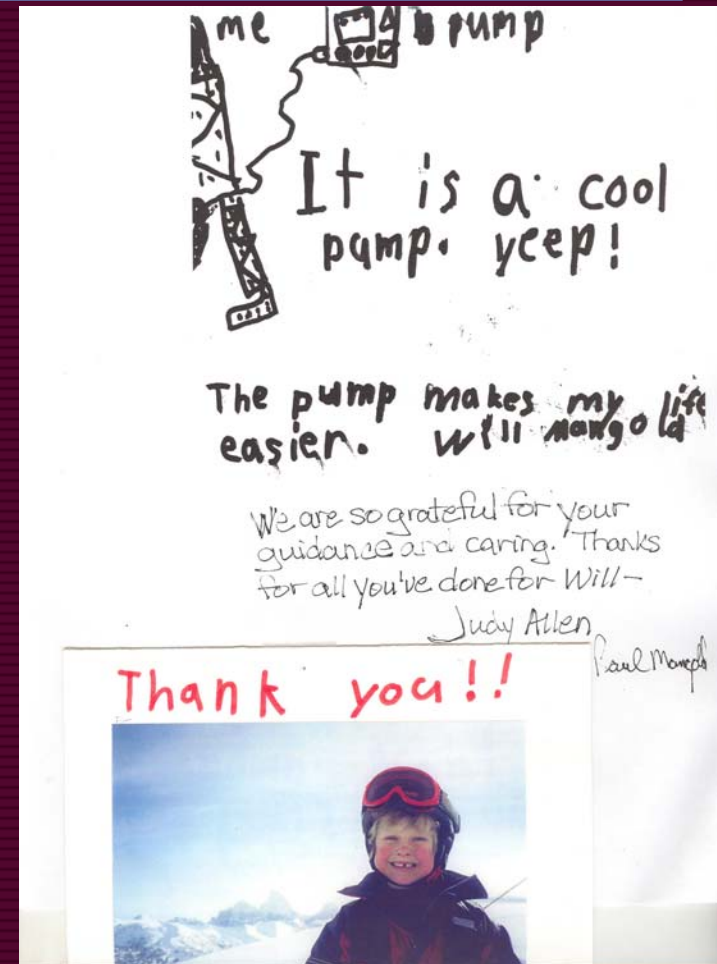 me pump
It is a cool
pump. yeep!
The pump makes my life
easier. Will Mangold
We are so grateful for your
guidance and caring. Thanks
for all you've done for Will-
Judy Allen
Paul Mangold
Thank you!!